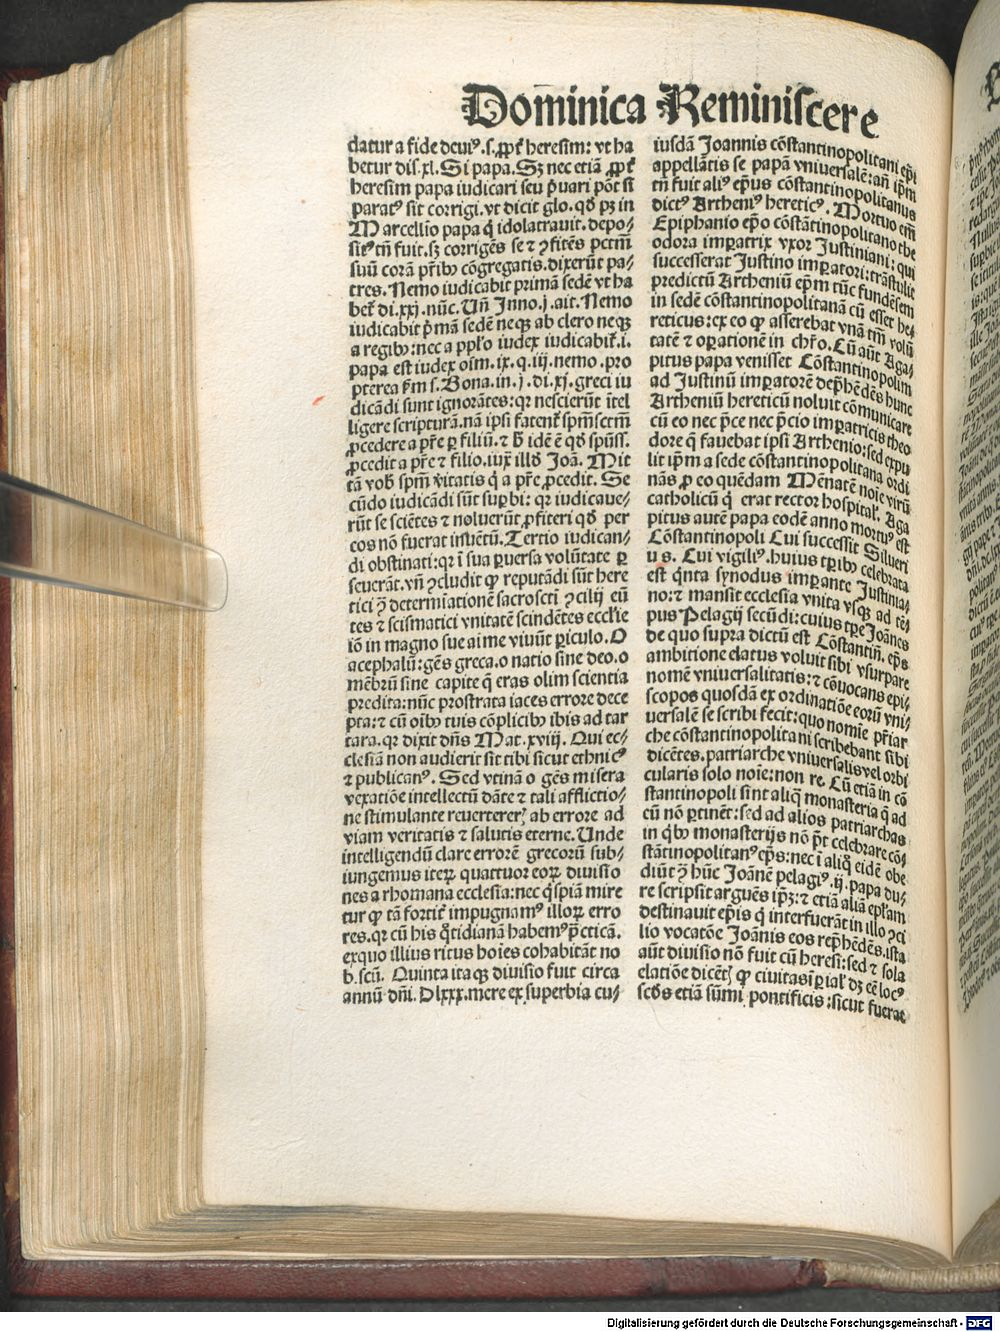 Dom̄inica Reminiscere
datur a fide deuiꝰ.s.ꝓpt̃ heresim: vt ha
betur dis.xl. Si papa. Sꝫ nec etiã ꝓpt̃
heresim papa iudicari seu p̃uari põt si
paratꝰ sit corrigi. vt dicit glo. qđ pꝫ in
Marcellio papa q̇ idolatrauit. depo⸗
sitꝰ tñ fuit. sꝫ corrigẽs se ⁊ ꝯfitẽs pctm̃
suũ corã pr̃ibꝰ cõgregatis. dixerũt pa⸗
tres. Nemo iudicabit primã sedẽ vt ha
bet̃ di.xxj. nũc. Uñ Inno.j. ait. Nemo
iudicabit p̃mã sedẽ neqꝫ ab clero neqꝫ
a regibꝰ: nec a ppl̃o iudex iudicabit̃.i.
papa est iudex oĩm.ix.q.iij. nemo. pro
pterea fm̃ s. Bona. in.j.di.xj. greci iu
dicãdi sunt ignorãtes: qꝛ nescierũt ĩtel
ligere scripturã. nã ipsi fatent̃ spm̃sctm̃
ꝓcedere a pr̃e ꝑ filiũ. ⁊ h̃ idẽ ẽ qđ spũss.
ꝓcedit a pr̃e ⁊ filio. iux̃ illđ Joã. Mit
tã vob̃ spm̃ v̓itatis q̇ a pr̃e ꝓcedit. Se
cũdo iudicãdi sũt suꝑbi: qꝛ iudicaue⸗
rũt se sciẽtes ⁊ noluerũt ꝓfiteri qđ per
eos nõ fuerat inuẽtũ. Tertio iudican⸗
di obstinati: qꝛ ĩ sua ꝑuersa volũtate ꝑ
seuerãt. vñ ꝯcludit ꝙ reputãdi sũt here
tici ꝯ̃ determĩationẽ sacroscti ꝯcilij eũ
tes ⁊ scismatici vnitatẽ scindẽtes eccl̃ie
iõ in magno sue aĩe viuũt ꝑiculo. O
acephalũ: gẽs greca. o natio sine deo. o
mẽbrũ sine capite q̃ eras olim scientia
predita: nũc prostrata iaces errore dece
pta: ⁊ cũ oĩbꝰ tuis cõplicibꝰ ibis ad tar
tara. qꝛ dixit dñs Mat.xviij. Qui ec⸗
clesiã non audierit sit tibi sicut ethnicꝰ
⁊ publicanꝰ. Sed vtinã o gẽs misera
vexatiõe intellectũ dãte ⁊ tali afflictio⸗
ne stimulante reuerterer̃ ab errore ad
viam veritatis ⁊ salutis eterne. Unde
intelligendũ clare errorẽ grecorũ sub⸗
iungemus iteꝝ quattuor eoꝝ diuisio
nes a rhomana ecclesia: nec q̇spiã mire
tur ꝙ tã fortit̃ impugnamꝰ illoꝝ erro
res. qꝛ cũ his q̊tidianã habemꝰ p̃cticã.
exquo illius ritus hoĩes cohabitãt no
b. scũ. Quinta itaqꝫ diuisio fuit circa
annũ dñi. Dlxxx. mere ex superbia cu⸗
iusdã Joannis cõstantinopolitani ep̃i
appellãtis se papã vniuersalẽ: añ ip̃m
tñ fuit aliꝰ ep̃us cõstantinopolitanus
dictꝰ Artheniꝰ hereticꝰ. Mortuo em̃
Epiphanio ep̃o cõstãtinopolitano the
odora imꝑatrix vxor Justiniani: qui
successerat Justino imꝑatori: trãstulit
predictũ Artheniũ ep̃m tũc fundẽsem
in sedẽ cõstantinopolitanã cũ esset he⸗
reticus: ex eo ꝙ asserebat vnã tm̃ volũ
tatẽ ⁊ oꝑationẽ in chr̃o. Cũ aũt Aga⸗
pitus papa venisset Cõstantinopolim
ad Justinũ imꝑatorẽ dep̃hẽdẽs hunc
Artheniũ hereticũ noluit cõmunicare
cũ eo nec p̃ce nec p̃cio imꝑatricis theo
dore q̃ fauebat ipsi Arthenio: sed expu
lit ip̃m a sede cõstantinopolitana ordi
nãs ꝓ eo quẽdam Mẽnatẽ noĩe virũ
catholicũ q̇ erat rector hospital̃. Aga
pitus autẽ papa eodẽ anno mortuꝰ est
Cõstantinopoli Cui successit Silueri
us. Cui vigiliꝰ. huius tꝑibꝰ celebrata
est q̇nta synodus imꝑante Justinia⸗
no: ⁊ mansit ecclesia vnita vsqꝫ ad tẽ⸗
pus Pelagij secũdi: cuius tꝑe Joãnes
de quo supra dictũ est Cõstantiñ. ep̃s
ambitione elatus voluit sibi vsurpare
nomẽ vniuersalitatis: ⁊ cõuocans epi⸗
scopos quosdã ex ordinatiõe eorũ vni⸗
uersalẽ se scribi fecit: quo nomĩe pr̃iar
che cõstantinopolitani scribebant sibi
dicẽtes. patriarche vniuersalis vel orbi
cularis solo noĩe: non re. Cũ etiã in cõ
stantinopoli sint aliq̃ monasteria q̃ ad
eũ nõ ꝑtinẽt: sed ad alios patriarchas
in q̇bꝰ monasterijs nõ p̃t celebrare cõ⸗
stãtinopolitanꝰ ep̃s: nec ĩ aliq̊ eidẽ obe
diũt ꝯ̃ hũc Joãnẽ pelagiꝰ.ij. papa du⸗
re scripsit arguẽs ip̃ꝫ: ⁊ etiã aliã epl̃am
destinauit ep̃is q̇ interfuerãt in illo ꝯci
lio vocatõe Joãnis eos rep̃hẽdẽs. ista
aũt diuisio nõ fuit cũ heresi: sed ⁊ sola
elatiõe dicẽt̃ ꝙ ciuitas iꝑial̃ dꝫ eẽ locꝰ
scđs etiã sũmi pontificis: sicut fuerat
Digitalisierung gefördert durch die Deutsche Forschungsgemeinschaft - DFG